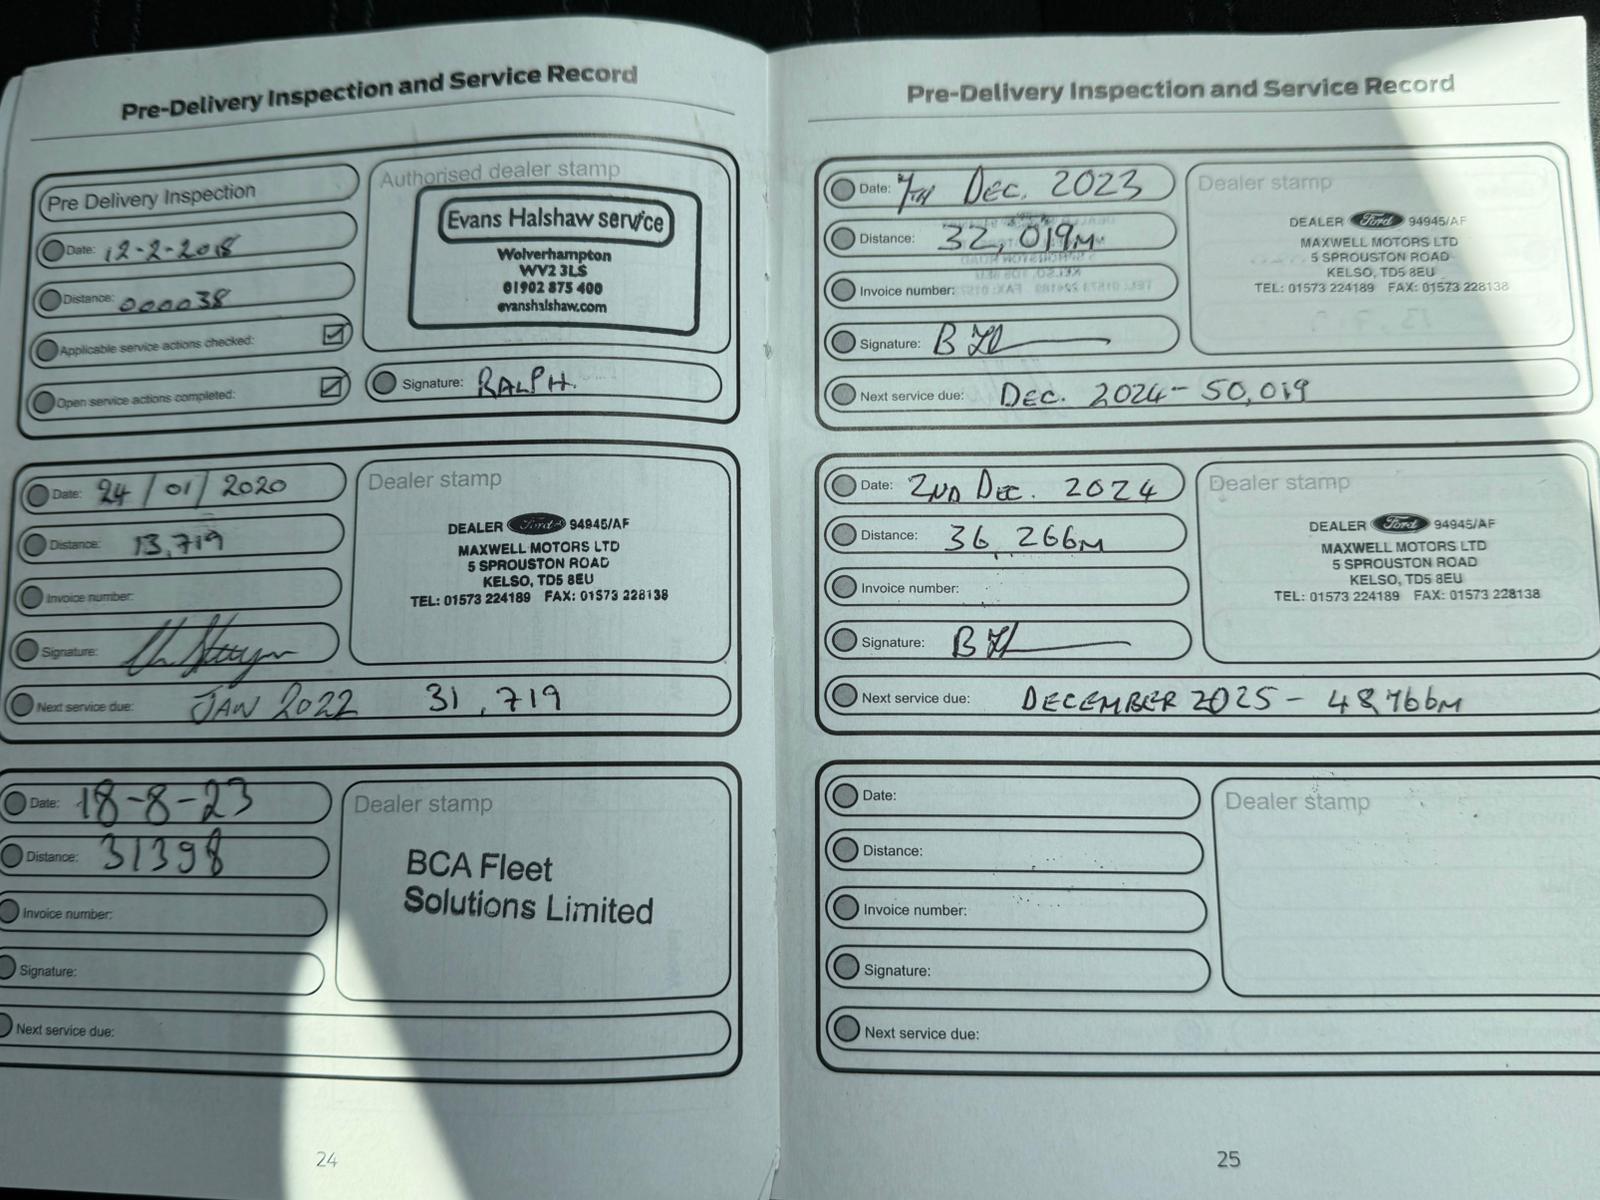 Pre-Delivery Inspection and Service Record
Pre Delivery Inspection
Date: 12-2-2018
Distance: 000038
Applicable service actions checked:
Open service actions completed:
Authorised dealer stamp
Evans Halshaw service
Wolverhampton
WV2 3LS
01902 875 400
evanshalshaw.com
Signature: RALPH.
Date: 24/01/2020
Distance: 13,719
Invoice number:
Signature:
Next service due: JAN 2022 31,719
Dealer stamp
DEALER Ford 94945/AF
MAXWELL MOTORS LTD
5 SPROUSTON ROAD
KELSO, TD5 8EU
TEL: 01573 224189 FAX: 01573 228138
Date: 18-8-23
Distance: 31398
Invoice number:
Signature:
Next service due:
Dealer stamp
BCA Fleet
Solutions Limited
24
Pre-Delivery Inspection and Service Record
Date: 7TH DEC. 2023
Distance: 32,019M
Invoice number:
Signature:
Next service due: DEC. 2024 - 50,019
Dealer stamp
DEALER Ford 94945/AF
MAXWELL MOTORS LTD
5 SPROUSTON ROAD
KELSO, TD5 8EU
TEL: 01573 224189 FAX: 01573 228138
Date: 2ND DEC. 2024
Distance: 36,266M
Invoice number:
Signature:
Next service due: DECEMBER 2025 - 48,766M
Dealer stamp
DEALER Ford 94945/AF
MAXWELL MOTORS LTD
5 SPROUSTON ROAD
KELSO, TD5 8EU
TEL: 01573 224189 FAX: 01573 228138
Date:
Distance:
Invoice number:
Signature:
Next service due:
Dealer stamp
25